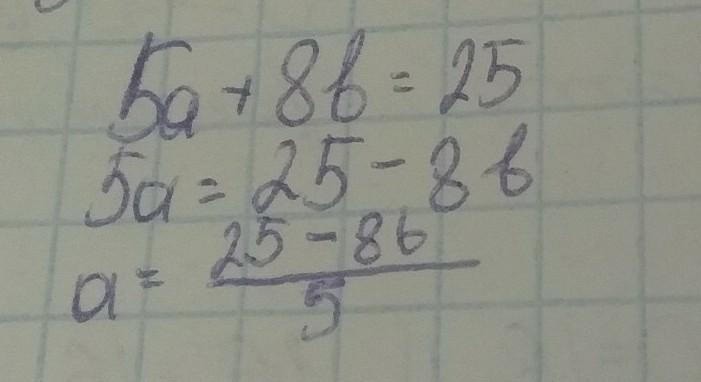 5a + 8b = 25
5a = 25 - 8b
a = \frac{25 - 8b}{5}